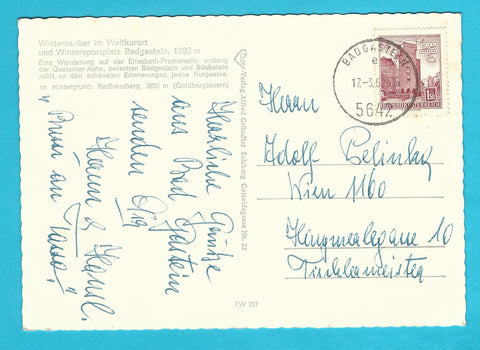 Winterzauber im Weltkurort
und Wintersportplatz Badgastein, 1083 m
Eine Wanderung auf der Elisabeth-Promenade, entlang
der Gasteiner Ache, zwischen Badgastein und Böckstein
zählt zu den schönsten Erinnerungen jedes Kurgastes.
Im Hintergrund: Radhausberg, 2651 m (Goldbergtauern)
Cosy-Verlag Alfred Gründler Salzburg Getreidegasse Nr. 22
Herzliche Grüße
aus Bad Gastein
senden
Hansl.
BADGASTEIN
e
17.-3.6
5640
REPUBLIK ÖSTERREICH
Herrn
Adolf
Wien 1160
10
Tischlermeister
PW 737